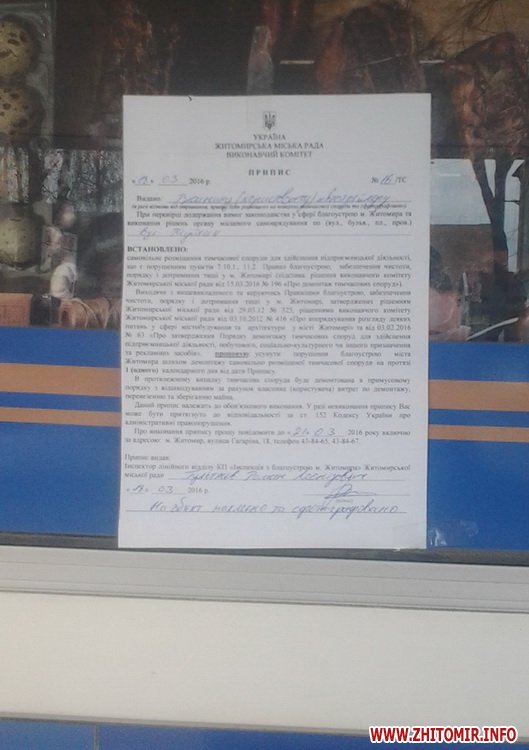 УКРАЇНА
ЖИТОМИРСЬКА МІСЬКА РАДА
ВИКОНАВЧИЙ КОМІТЕТ
ПРИПИС
03 2016 р. № 16/ТС
Видано Власнику (користувачу)
При перевірці додержання вимог законодавства у сфері благоустрою м. Житомира та
виконання рішень органу місцевого самоврядування по (вул., бульв., пл., пров.)
вул.
ВСТАНОВЛЕНО:
самовільне розміщення тимчасової споруди для здійснення підприємницької діяльності,
що є порушенням пунктів 7.10.1., 11.2. Правил благоустрою, забезпечення чистоти,
порядку і дотримання тиші у м. Житомирі (підстава: рішення виконавчого комітету
Житомирської міської ради від 15.03.2016 № 196 «Про демонтаж тимчасових споруд»).
Виходячи з вищевикладеного та керуючись Правилами благоустрою, забезпечення
чистоти, порядку і дотримання тиші у м. Житомирі, затверджених рішенням
Житомирської міської ради від 29.03.12 № 325, рішеннями виконавчого комітету
Житомирської міської ради від 03.10.2012 № 416 «Про впорядкування розгляду деяких
питань у сфері містобудування та архітектури у місті Житомирі» та від 03.02.2016
№ 63 «Про затвердження Порядку демонтажу тимчасових споруд для здійснення
підприємницької діяльності, побутового, соціально-культурного чи іншого призначення
та рекламних засобів», пропоную усунути порушення благоустрою міста
Житомира шляхом демонтажу самовільно розміщеної тимчасової споруди на протязі
1 (одного) календарного дня від дати Припису.
В протилежному випадку тимчасова споруда буде демонтована в примусовому
порядку з відшкодуванням за рахунок власника (користувача) витрат по демонтажу,
перевезенню та зберіганню майна.
Даний припис належить до обов'язкового виконання. У разі невиконання припису Вас
може бути притягнуто до відповідальності за ст. 152 Кодексу України про
адміністративні правопорушення.
Про виконання припису прошу повідомити до «21» 03 2016 року включно
за адресою: м. Житомир, вулиця Гагаріна, 18, телефон 43-84-65, 43-84-67.
Припис видав:
Інспектор лінійного відділу КП «Інспекція з благоустрою м. Житомира» Житомирської
міської ради
03 2016 р.
На об'єкт наклеєно та сфотографовано
WWW.ZHITOMIR.INFO